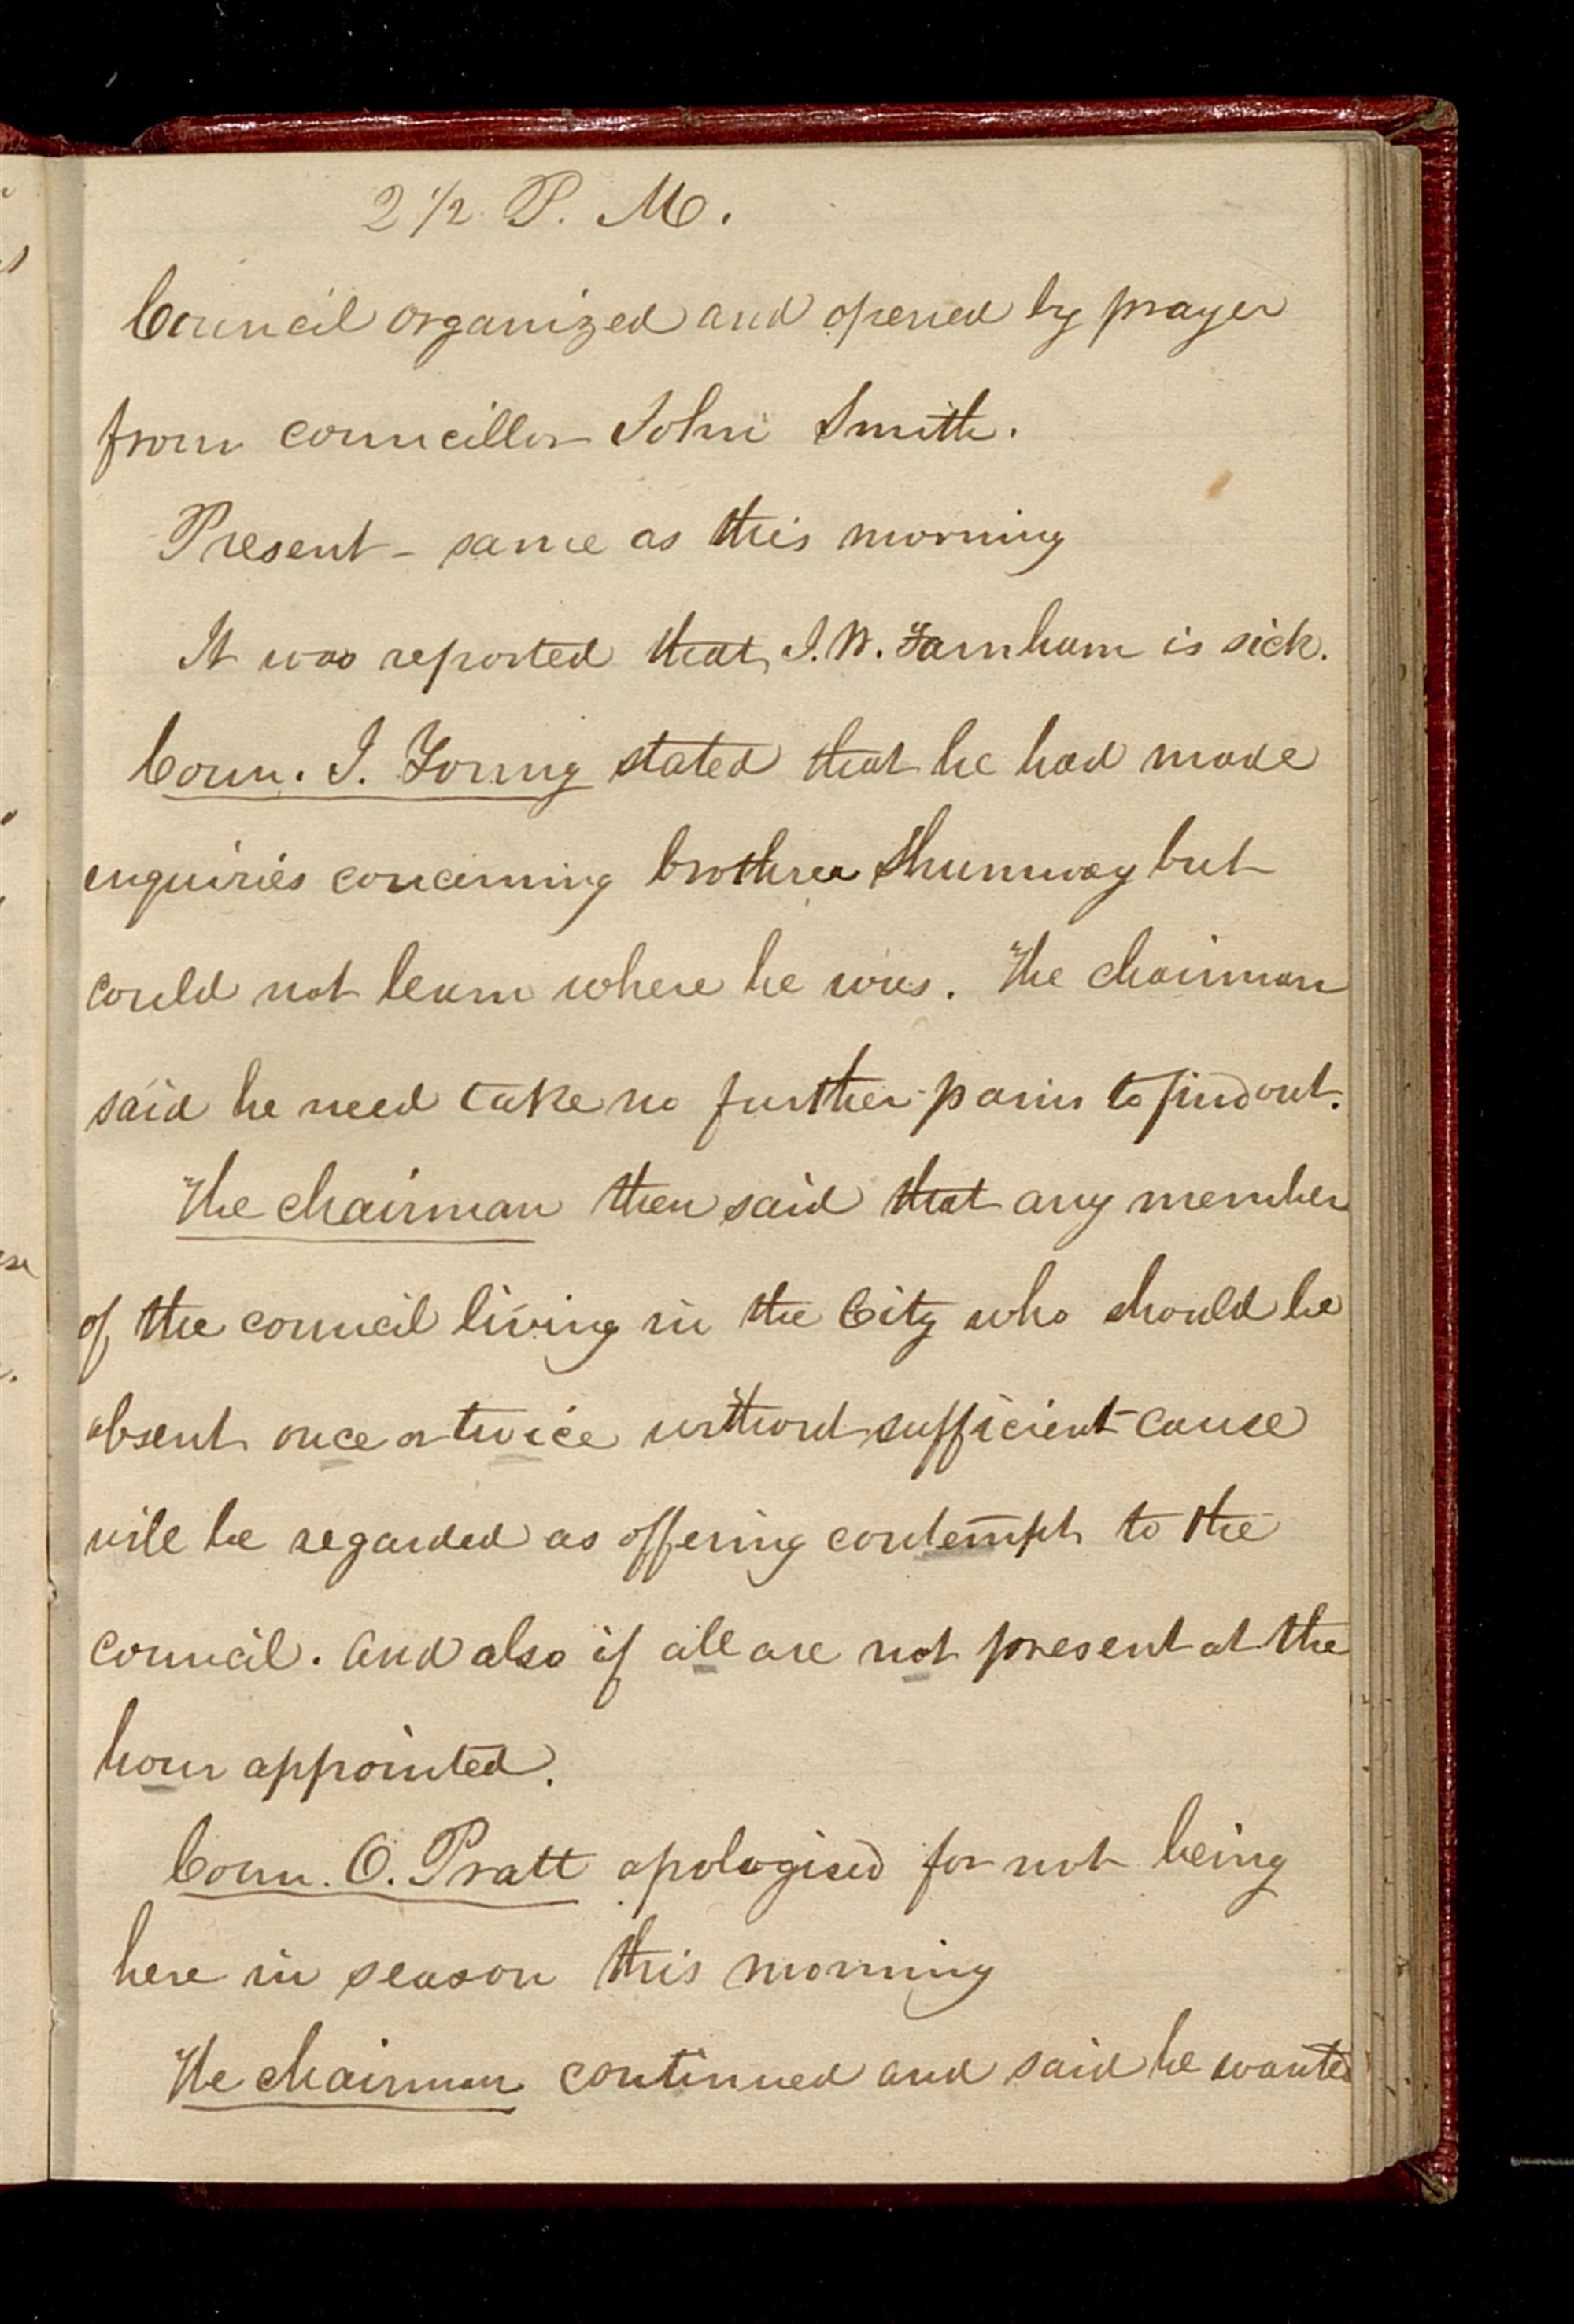 2 1/2 P. M.
Council organized and opened by prayer
from councillor John Smith.
Present - same as this morning
It was reported that J. W. Farnham is sick.
Coun. J. Young stated that he had made
enquiries concerning brother Shumway but
could not learn where he was. The chairman
said he need take no further pains to find out.
The chairman then said that any member
of the council living in the City who should be
absent once or twice without sufficient cause
will be regarded as offering contempt to the
council. and also if all are not present at the
hour appointed.
Coun. O. Pratt apologised for not being
here in season this morning
The chairman continued and said he wanted